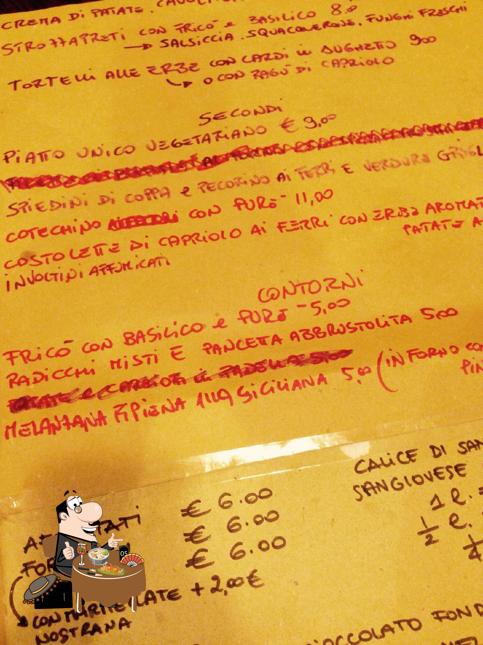 CREMA DI PATATE,
STROZZAPRETI CON FRICÒ e BASILICO 8.00
→ SALSICCIA, SQUACQUERONE, FUNGHI FRESCHI
TORTELLI ALLE ERBE CON CARDI in SUGHETO 9.00
↳ O CON RAGÙ DI CAPRIOLO
SECONDI
PIATTO UNICO VEGETARIANO € 9,00
SPIEDINI DI COPPA e PECORINO AI FERRI E VERDURE
COTECHINO CON PURÈ - 11,00
COSTOLETTE DI CAPRIOLO AI FERRI CON ERBE AROMAT
INVOLTINI AFFUMICATI
PATATE A
CONTORNI
FRICÒ CON BASILICO e PURÈ - 5,00
RADICCHI MISTI E PANCETTA ABBRUSTOLITA 5,00
MELANZANA RIPIENA ALLA SICILIANA 5,00 (IN FORNO CO
€ 6.00
€ 6.00
€ 6.00
+ 2,00€
NOSTRANA
CALICE DI SAN
SANGIOVESE
1 l.
½ l.
¼
FOND